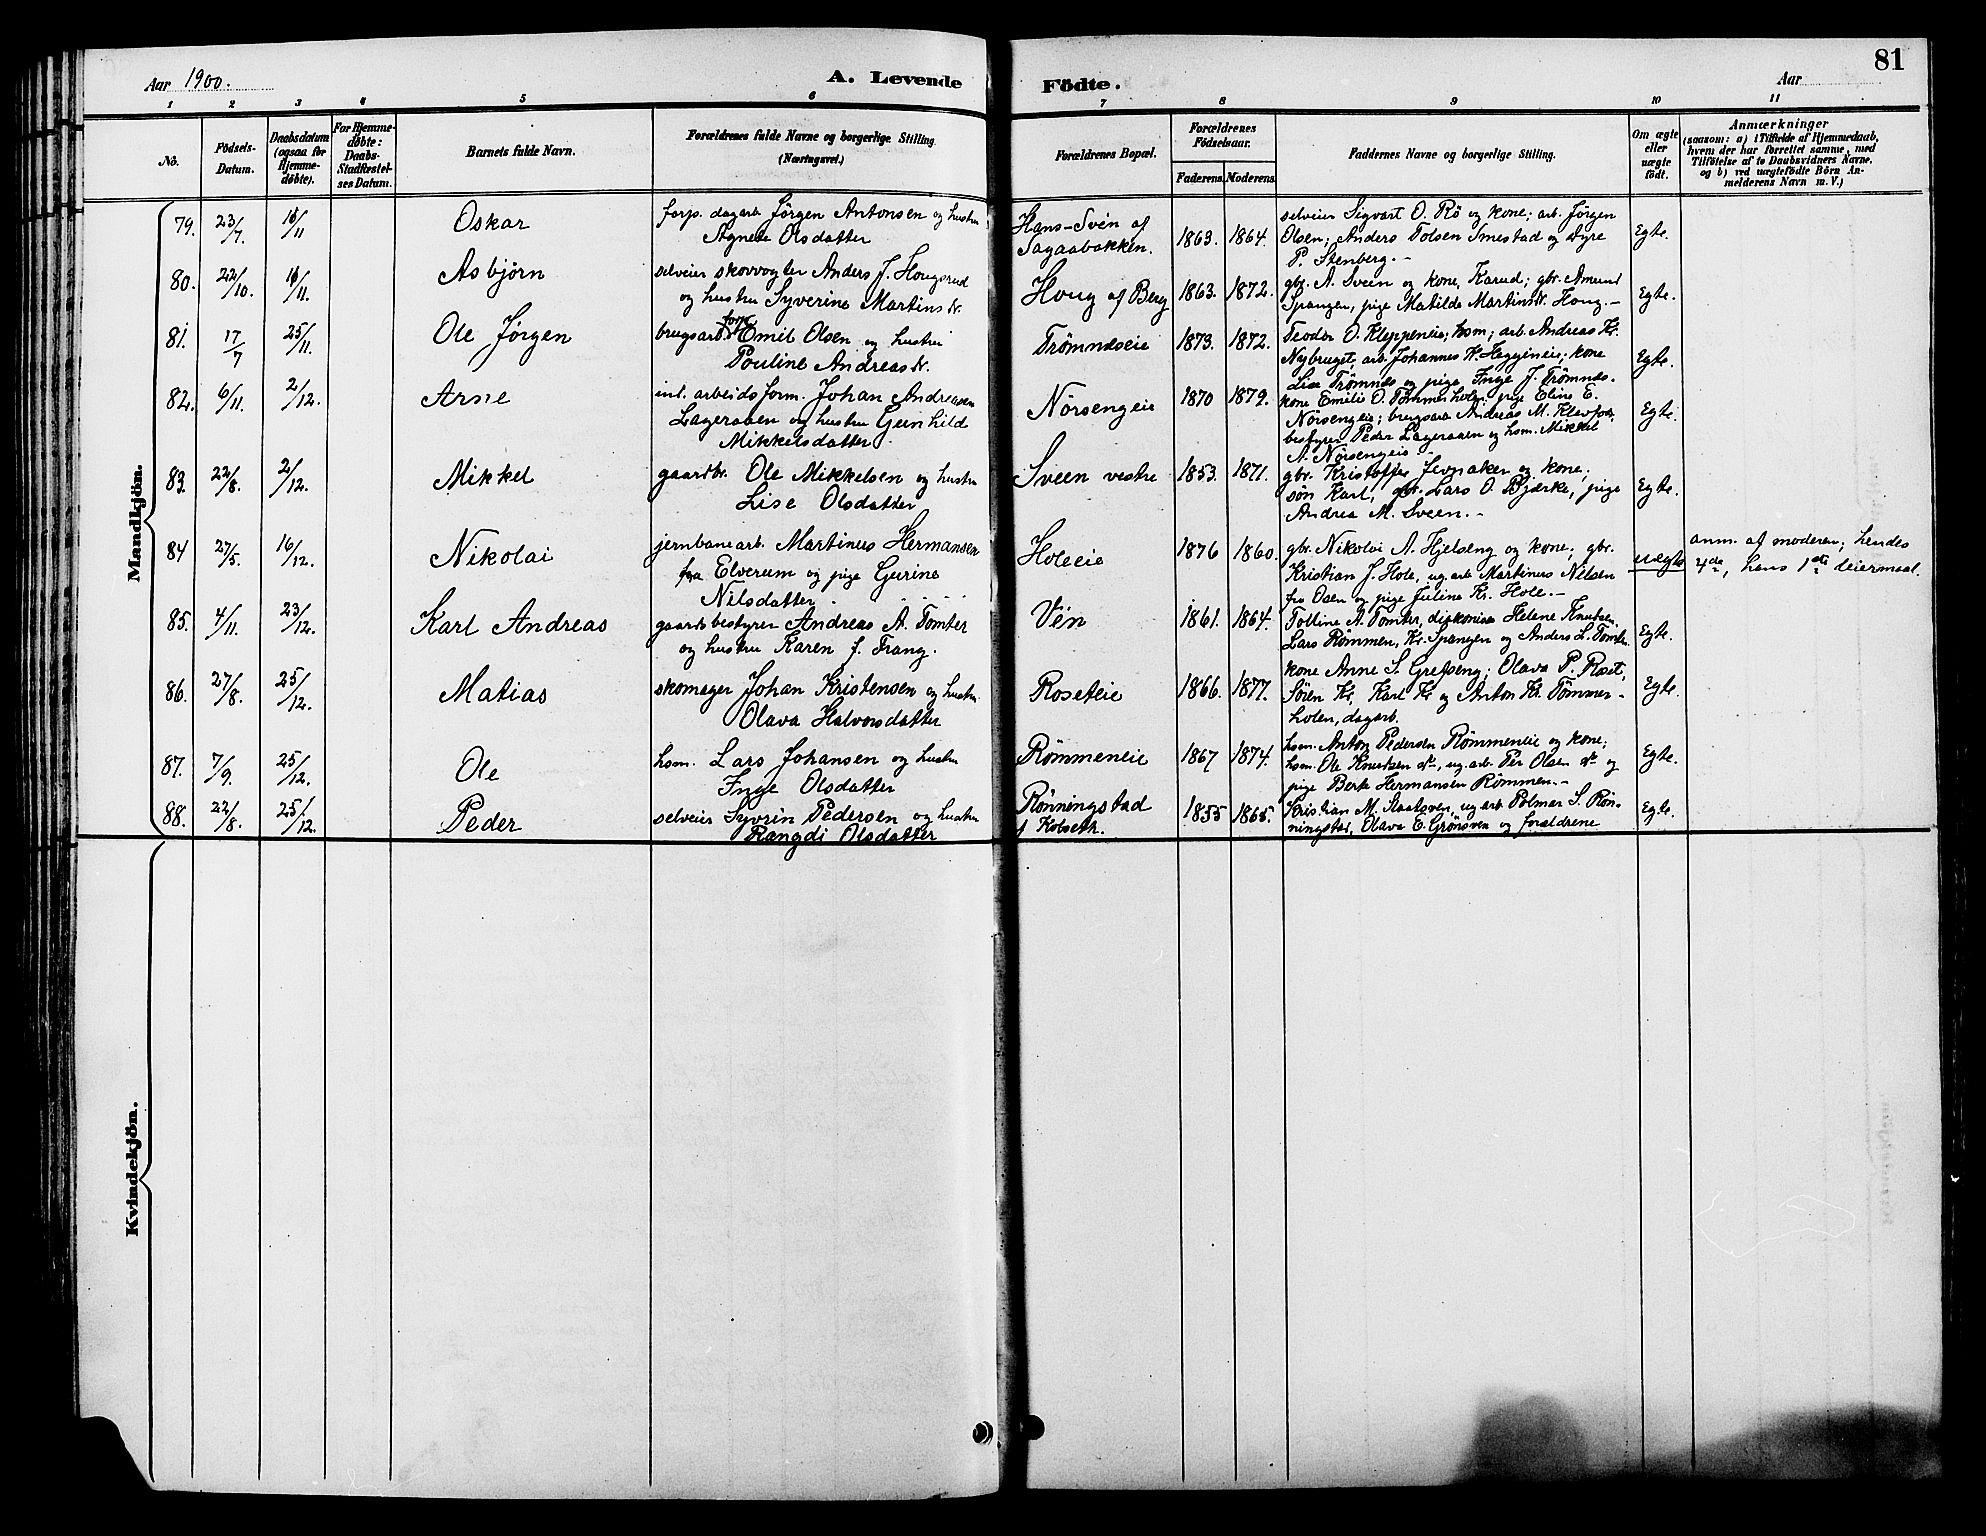 81
Aar 1900.
A. Levende Födte.
Aar
1 2 3 4 5 6 7 8 9 10 11
No.
Födsels-Datum.
Daabsdatum (ogsaa for Hjemme-döbte).
For Hjemme-döbte: Daabs-Stadfæstel-ses Datum.
Barnets fulde Navn.
Forældrenes fulde Navne og borgerlige Stilling. (Næringsvei.)
Forældrenes Bopæl.
Forældrenes Födselsaar.
Faderens. Moderens.
Faddernes Navne og borgerlige Stilling.
Om ægte eller uægte födt.
Anmærkninger
(saasom: a) i Tilfælde af Hjemmedaab, hvem der har forrettet samme, med Tilföielse af to Daabsvidners Navne, og b) ved uægtefödte Börn An-melderens Navn m. V.)
Mandkjön.
79. 23/7. 18/11 Oskar
forp. dagarb. Jørgen Antonsen og hustru
Agnete Olsdatter
Hans-Svén af
Sagaabakken.
1863. 1864.
selveier Sigvart O. Rö og kone; arb. Jørgen
Olsen; Anders Tolsen Smestad og Dyre
P. Stenberg. –
Egte.
80. 22/10. 18/11. Asbjörn
selveier skovvogter Anders J. Hougsrud
og hustru Syverine Martinsdr.
Houg af Berg
1863. 1872.
gbr. A. Svein og kone, Karud; gbr. Amund
Spangen, pige Matilde Martinsdr. Houg. –
Egte.
81. 17/7 25/11. Ole Jörgen
brugsarb. forp. Emil Olsen og hustru
Pouline Andreasdr.
Trömnæseie
1873. 1872.
Teodor O. Kleppeneie, hsm; arb. Andreas Kr.
Nybruget, arb. Johannes H. Heggineie; kone
Lise Trömnæs og pige Inge J. Trömnæs.
Egte.
82. 6/11. 2/12. Arne
int. arbeidsform. Johan Andreasen
Lageraaen og hustru Gunhild
Mikkelsdatter
Nörsengeie
1870 1879.
kone Emilie O. Tömmerholen; pige Eline E.
Nörsengeie; brugsarb Andreas M. Klevfos,
bestyrer Peder Lageraaen og hsm. Mikkel
A. Nörsengeie
Egte.
83. 22/8. 2/12. Mikkel
gaardbr. Ole Mikkelsen og hustru
Lise Olsdatter
Sveen vestre
1853. 1871.
gbr. Kristoffer Jevnaker og kone;
søn Karl; gbr. Lars O. Bjærke, pige
Andrea M. Sveen. –
Egte.
84 27/5. 16/12. Nikolai
jernbanearb. Martinus Hermansen
fra Elverum og pige Gurine
Nilsdatter
Holeeie
1876 1860.
gbr. Nikolai A. Hjelseng og kone; gbr.
Kristian J. Hole, ug. arb. Martinus Nilsen
fra Osen og pige Juline Kr. Hole. –
uegte
anm. af moderen; hendes
4de, hans 1ste leiermaal.
85. 4/11. 23/12. Karl Andreas
gaardsbestyrer Andreas A. Tomter
og hustru Karen f. Frang.
Vén
1861. 1864.
Tolline A. Tomter, diakonisse Helene Knutsen.
Lars Rømmen, Kr. Spangen og Anders L. Tomter.
Egte.
86. 27/8. 25/12. Matias
skomager Johan Kristensen og hustru
Olava Halvorsdatter
Roseteie
1866. 1877.
kone Anne S. Grefseng; Olava P. Roset,
Sören Kr., Karl Kr. og Anton Kr. Tömmer-
holen, dagarb.
Egte.
87. 7/9. 25/12. Ole
hsm. Lars Johansen og hustru
Inge Olsdatter
Römmeneie
1867 1874.
hsm. Anton Pedersen Römmeneie og kone;
hsm. Ole Knutsen do, ug. arb. Per Olsen do og
pige Berte Hermansen Römmen. –
Egte.
88. 22/8. 25/12. Peder
selveier Syvrin Pedersen og hustru
Rangdi Olsdatter
Rönningstad
f Kolseth.
1855 1865.
Kristian M. Staatsven, ug. arb. Polmar S. Rön-
ningstad, Olava E. Grönsven og forældrene
Egte.
Kvindekjön.